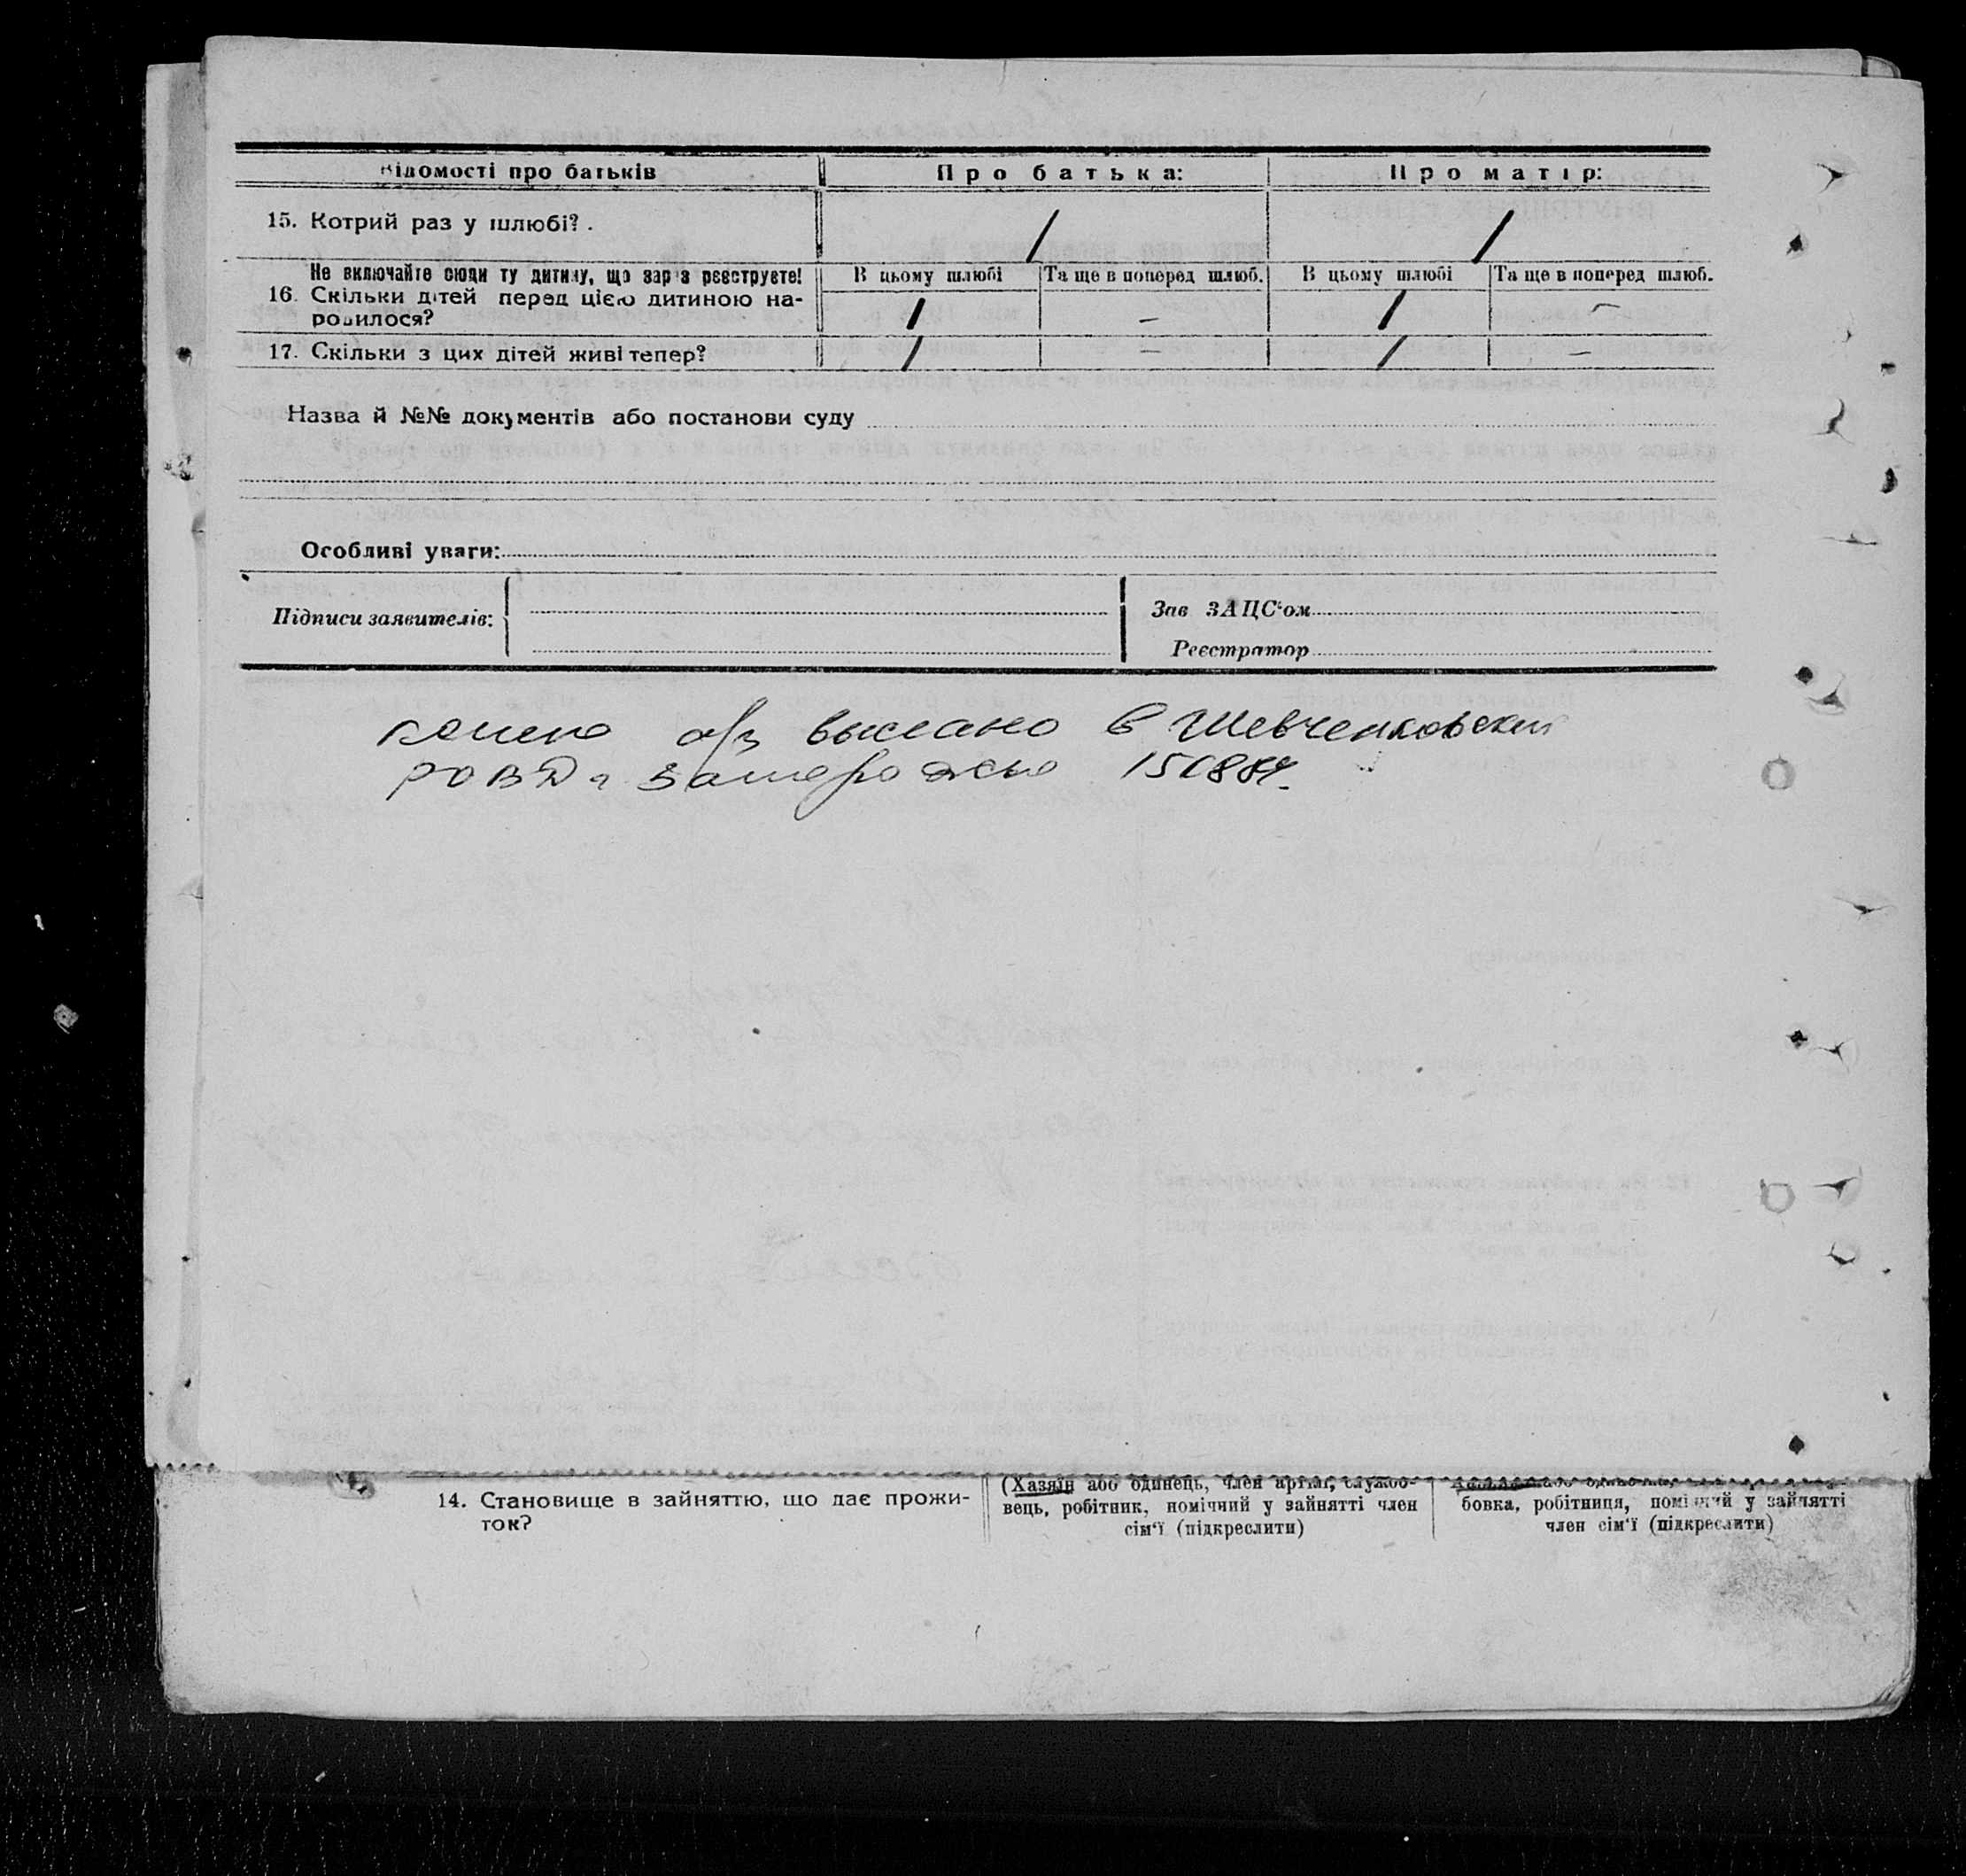 Відомості про батьків Про батька: Про матір:
15. Котрий раз у шлюбі?. 1 1
Не включайте сюди ту дитину, що зараз реєструєте! В цьому шлюбі Та ще в поперед шлюб. В цьому шлюбі Та ще в поперед шлюб.
16. Скільки дітей перед цією дитиною на-
родилося? 1 – 1 –
17. Скільки з цих дітей живі тепер? 1 – 1 –
Назва й №№ документів або постанови суду
Особливі уваги:
Підписи заявителів:
Зав ЗАЦС'ом
Реєстратор
копия а/з выслано в Шевченковский
РОВД г Запорожье 150884.
14. Становище в зайняттю, що дає прожи-
ток?
(Хазяїн або одинець, член артілі, службо-
вець, робітник, помічний у зайнятті член
сім'ї (підкреслити)
бовка, робітниця, помічний у зайнятті
член сім'ї (підкреслити)